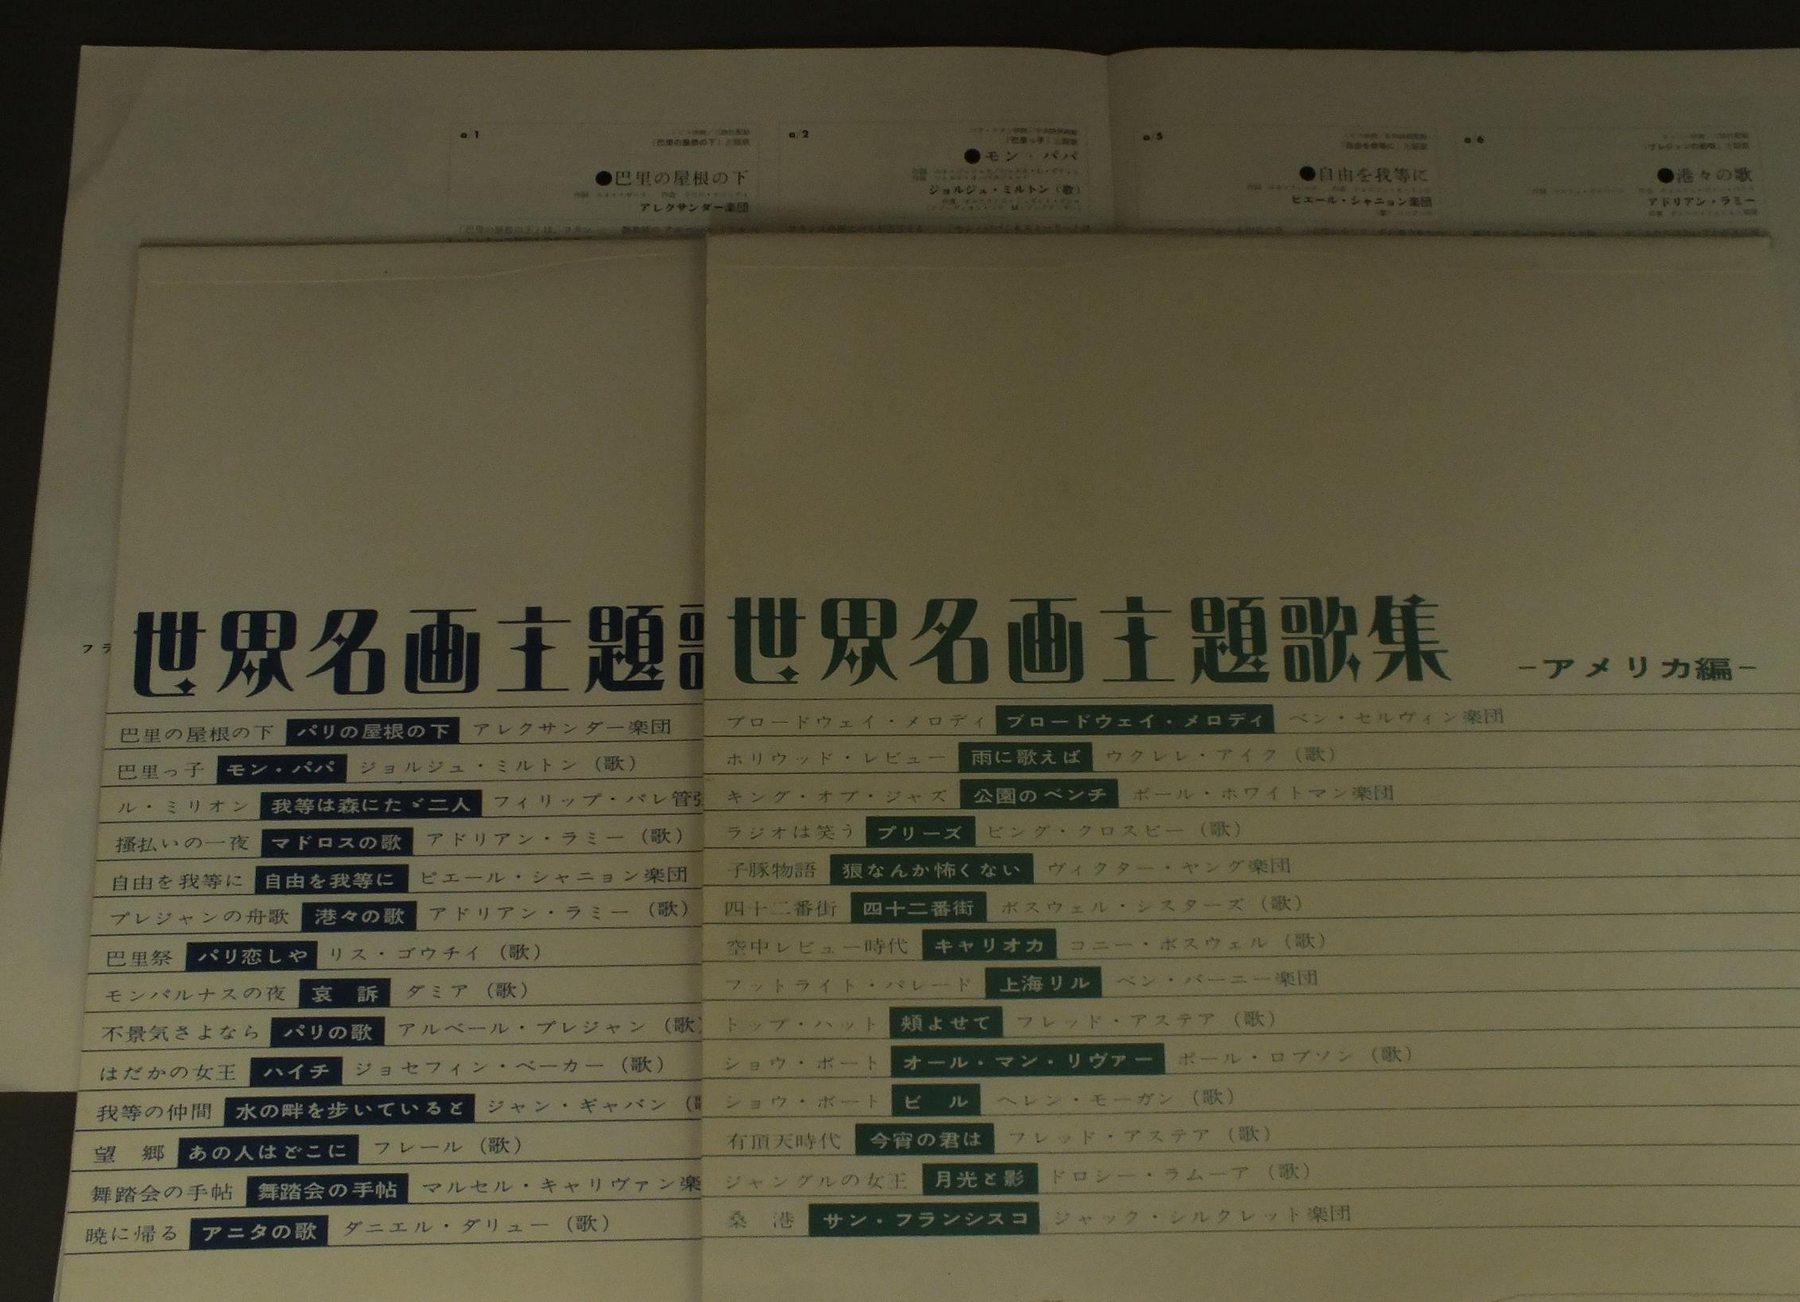 a/1
「巴里の屋根の下」主題歌
●巴里の屋根の下
アレクサンダー楽団
a/2
「巴里っ子」主題歌
●モン・パパ
ジョルジュ・ミルトン（歌）
a/5
「自由を我等に」主題歌
●自由を我等に
ピエール・シャニョン楽団
a/6
●港々の歌
アドリアン・ラミー
フラ
世界名画主題歌
巴里の屋根の下 パリの屋根の下 アレクサンダー楽団
巴里っ子 モン・パパ ジョルジュ・ミルトン（歌）
ル・ミリオン 我等は森にたゞ二人 フィリップ・パレ管弦
掻払いの一夜 マドロスの歌 アドリアン・ラミー（歌）
自由を我等に 自由を我等に ピエール・シャニョン楽団
プレジャンの舟歌 港々の歌 アドリアン・ラミー（歌）
巴里祭 パリ恋しや リス・ゴウチイ（歌）
モンパルナスの夜 哀 訴 ダミア（歌）
不景気さよなら パリの歌 アルベール・プレジャン（歌）
はだかの女王 ハイチ ジョセフィン・ベーカー（歌）
我等の仲間 水の畔を歩いていると ジャン・ギャバン（歌
望 郷 あの人はどこに フレール（歌）
舞踏会の手帖 舞踏会の手帖 マルセル・キャリヴァン楽
暁に帰る アニタの歌 ダニエル・ダリュー（歌）
世界名画主題歌集 -アメリカ編-
ブロードウェイ・メロディ ブロードウェイ・メロディ ベン・セルヴィン楽団
ホリウッド・レビュー 雨に歌えば ウクレレ・アイク（歌）
キング・オブ・ジャズ 公園のベンチ ポール・ホワイトマン楽団
ラジオは笑う プリーズ ビング・クロスビー（歌）
子豚物語 狼なんか怖くない ヴィクター・ヤング楽団
四十二番街 四十二番街 ボスウェル・シスターズ（歌）
空中レビュー時代 キャリオカ コニー・ボスウェル（歌）
フットライト・パレード 上海リル ベン・バーニー楽団
トップ・ハット 頬よせて フレッド・アステア（歌）
ショウ・ボート オール・マン・リヴァー ポール・ロブソン（歌）
ショウ・ボート ビ ル ヘレン・モーガン（歌）
有頂天時代 今宵の君は フレッド・アステア（歌）
ジャングルの女王 月光と影 ドロシー・ラムーア（歌）
桑 港 サン・フランシスコ ジャック・シルクレット楽団